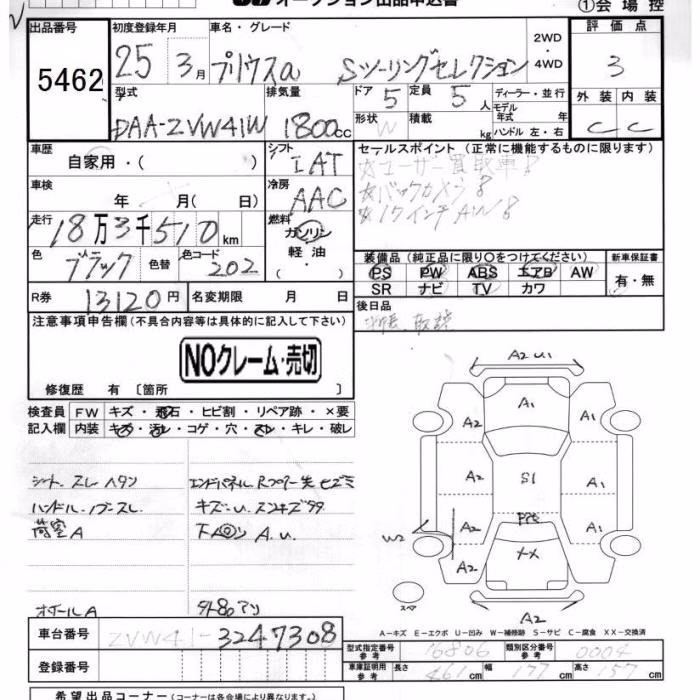 オークション出品申込書
①会場控
出品番号
5462
初度登録年月
25 3月
車名・グレード
プリウスα Sツーリングセレクション
2WD
・
4WD
評価点
3
型式
DAA-ZVW41W
排気量
1800cc
ドア
5
定員
5人
形状
W
積載
kg
ディーラー・並行
モデル
年式 年
ハンドル 左・右
外装 内装
C C
車歴
自家用・( )
シフト
IAT
車検
年 月( 日)
冷房
AAC
走行
18万3千510km
燃料
ガソリン
軽油
( )
色
ブラック
色替
色コード
202
R券
13120円
名変期限 月 日
セールスポイント (正常に機能するものに限ります)
☆ユーザー買取車!!
☆バックカメラ!!
☆17インチAW!!
装備品 (純正品に限り○をつけてください)
PS PW ABS エアB AW
SR ナビ TV カワ
新車保証書
有・無
後日品
注意事項申告欄(不具合内容等は具体的に記入して下さい)
NOクレーム・売切
修復歴 有 〔箇所 〕
検査員
記入欄
FW キズ・飛石・ヒビ割・リペア跡・×要
内装 キズ・汚レ・コゲ・穴・スレ・キレ・破レ
シート スレ ヘタリ
ハンドル・ノブスレ
荷室A
オイルA
キズ・U・スンキズ99
下廻 A.U
A2 U1
A2 A1
A2 S1 A1
A2 A1
W2
A2 A1
スペア
A2
A－キズ E－エクボ U－凹み W－補修跡 S－サビ C－腐食 XX－交換済
車台番号
ZVW41-3247308
登録番号
型式指定番号
参考
16806
類別区分番号
参考
0004
車庫証明用
参考
長さ
461cm
幅
177cm
高さ
157cm
希望出品コーナー(コーナーは各会場により異なります)